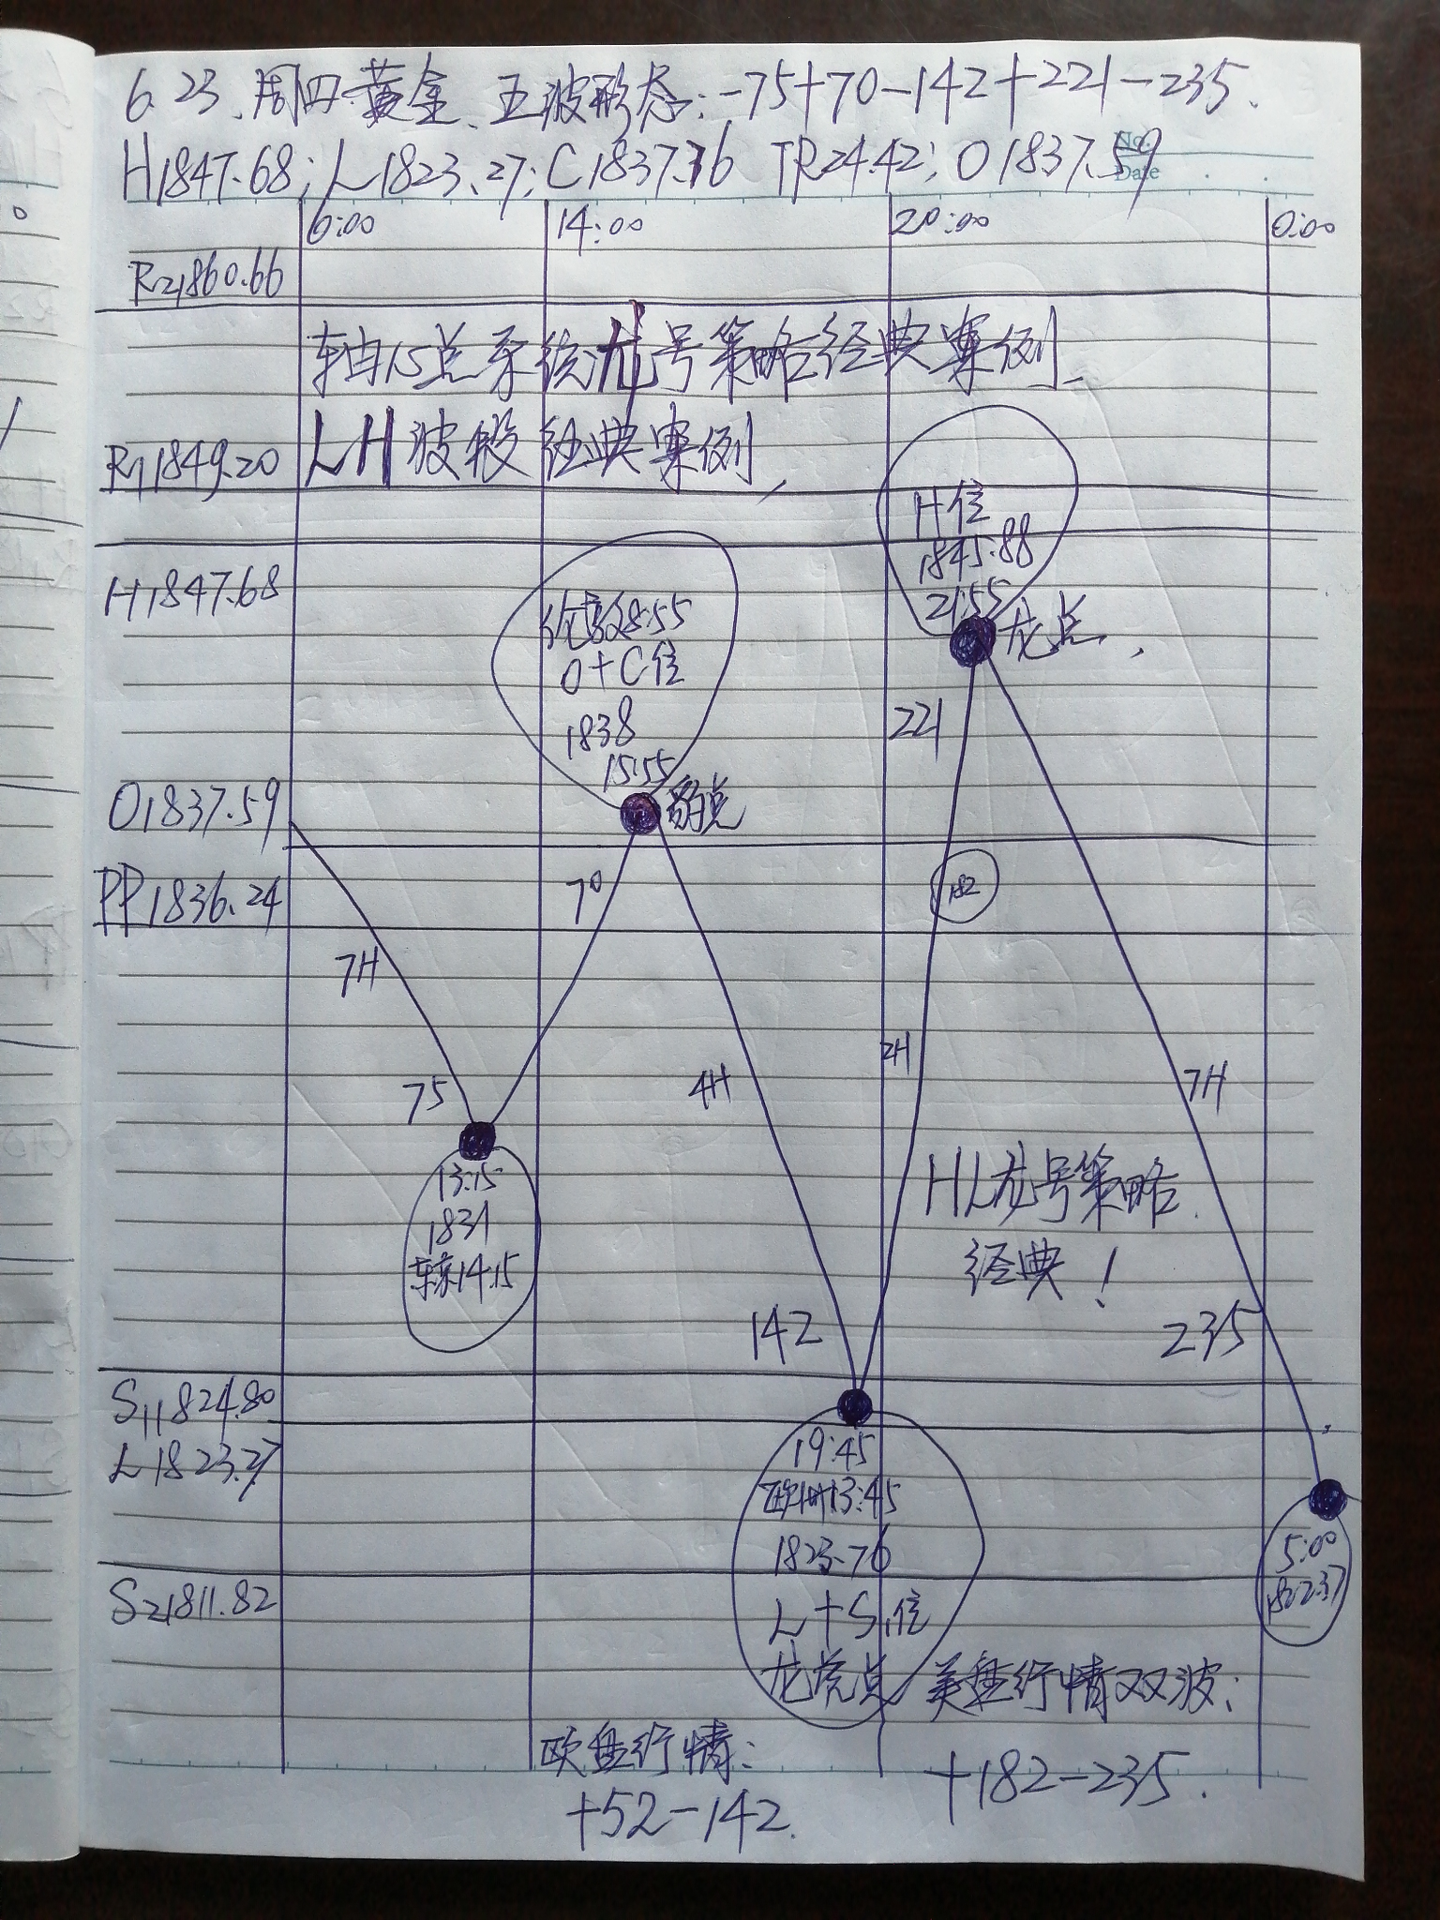 6.23.周四黄金、五波形态:-75+70-142+221-235.
H1847.68; L1823.27; C1837.36 TR24.42; O1837.59
No.
Date
6:00 14:00 20:00 0:00
R21860.66
轴15点系统龙号策略经典案例、
R11849.20 LH波段经典案例,
H位
1845.88
21:55
龙点,
H1847.68
伦敦8:55
O+C位
1838
15:55
豹点
221
O1837.59
PP1836.24
70
182
7H
75
4H
2H
7H
13:15
1831
东京14:15
HL龙号策略.
经典!
142
235
S11824.80
L1823.27
19:45
欧洲13:45
1823.76
L+S1位
龙虎点
5:00
1822.37
S21811.82
美盘行情双波:
+182-235.
欧盘行情:
+52-142.